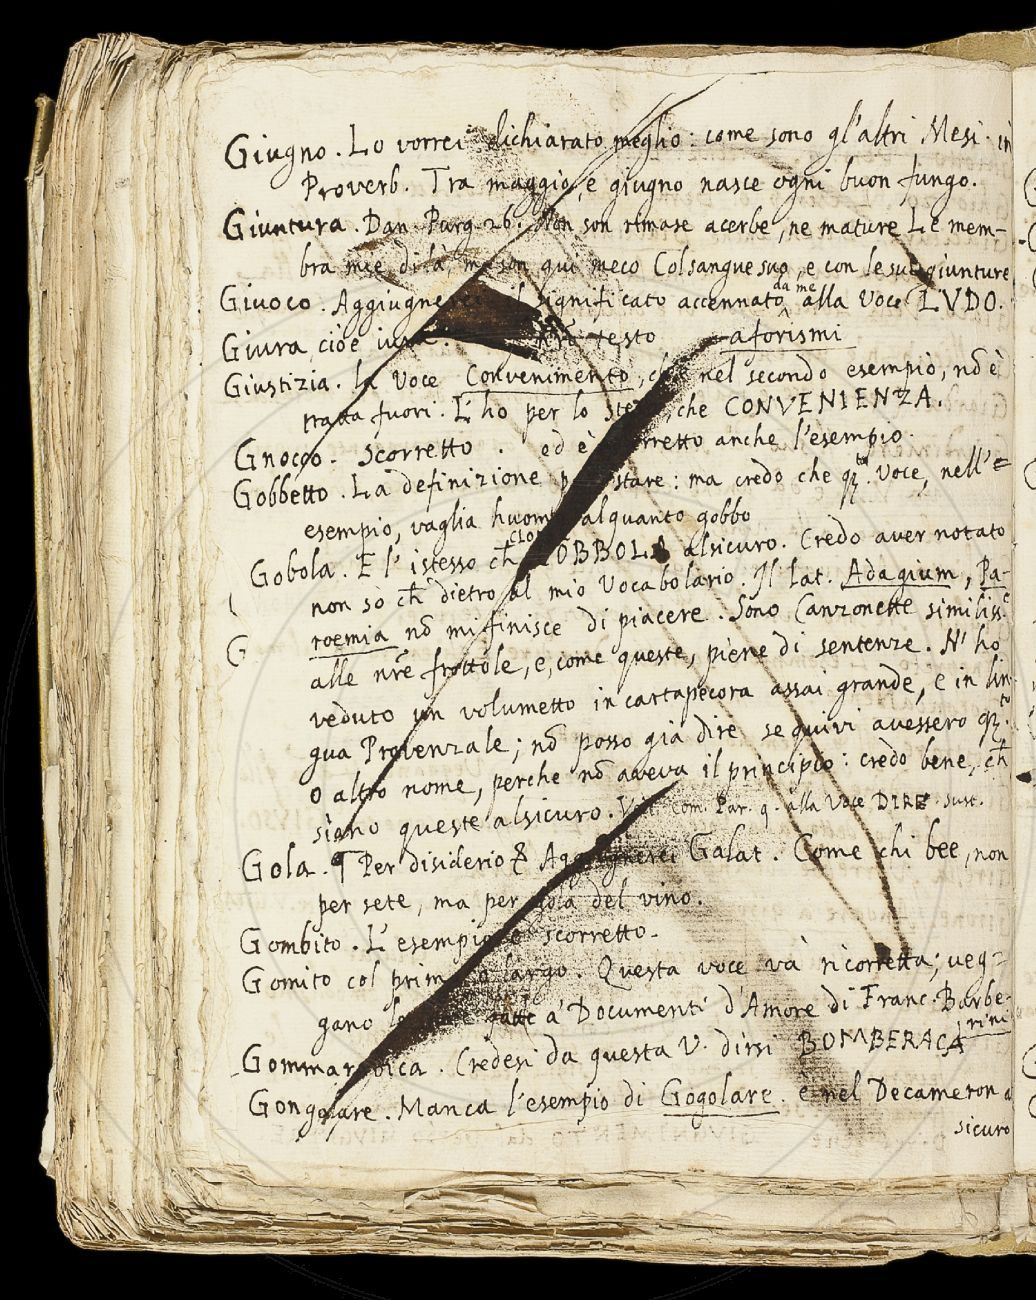 Giugno. Lo vorrei dichiarato meglio: come sono gl'altri Mesi. in
Proverb. Tra maggio, e giugno nasce ogni buon fungo.
Giuntura. Dan. Purg. 26. Non son rimase acerbe, ne mature Le mem-
bra mie di là, ma son qui meco Col sangue suo, e con le sue giunture
Giuoco. significato accennato da me alla Voce LVDO.
Giura, cioè testo aforismi
Giustizia. la Voce Convenimento, nel secondo esempio, nō è
tratta fuori. L'ho per lo che CONVENIENZA.
Gnocco. Scorretto. ed è anche l'esempio.
Gobbetto. La definizione stare: ma credo che Voce, nell'=
esempio, vaglia alquanto gobbo
Gobola. E l'istesso ch̄ alsicuro. Credo aver notato
non so ch̄ dietro al mio Vocabolario. Il lat. Adagium, Pa-
roemia nō mi finisce di piacere. Sono Canzonette similiss.e
G
alle nr̄e frottole, e, come queste, piene di sentenze. N'ho
veduto un volumetto in cartapecora assai grande, e in lin-
gua Provenzale; nō posso già dire se quivi avessero
o altro nome, perche nō aveva il principio: credo bene, ch̄
siano queste alsicuro. Com. Par. 9. alla Voce DIRE. sust.
Gola. ¶ Per disiderio & Galat. Come chi bee, non
per sete, ma per gola del vino.
Gombito. L'esempio scorretto.
Gomito col largo. Questa voce và ricorretta; veg-
gano a' Documenti d'Amore di Franc. Barbe-
rini
Credesi da questa V. dirsi BOMBERACA
Gongolare. Manca l'esempio di Gogolare. è nel Decameron a
sicuro